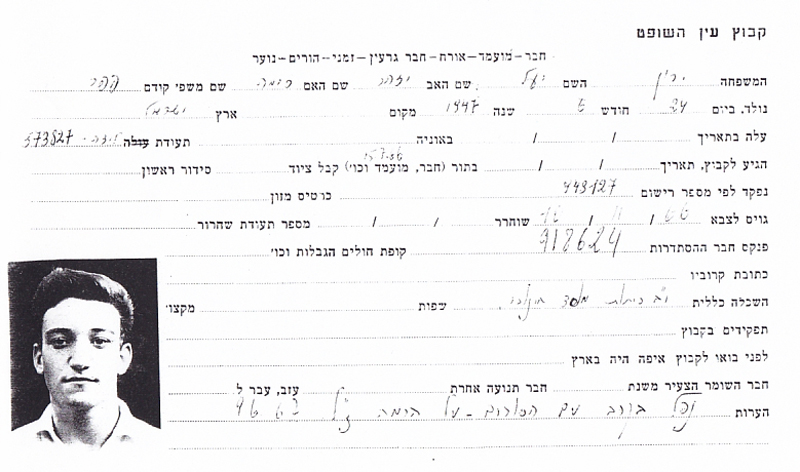 קבוץ עין השופט
חבר-מועמד-אורח-חבר גרעין-זמני-הורים-נוער
המשפחה ירון השם יעל שם האב יזהר שם האם רימה שם משפ׳ קודם
נולד. ביום 24 חודש 5 שנה 1947 מקום ארץ ישראל
עלה בתאריך / / באוניה תעודת עולה ת.זהו - 573827
הגיע לקבוץ, תאריך / / בתור (חבר, מועמד וכו׳) קבל ציוד סידור ראשון
נפקד לפי מספר רישום 443127 כרטיס מזון
גויס לצבא 66 / 11 / שוחרר / / מספר תעודת שחרור
פנקס חבר ההסתדרות 918624 קופת חולים הגבלות וכו׳
כתובת קרוביו
השכלה כללית י"ב כיתות מוסד חינוכי. שפות מקצוע
תפקידים בקבוץ
לפני בואו לקבוץ איפה היה בארץ
חבר השומר הצעיר משנת חבר תנועה אחרת עזב, עבר ל
הערות נפל בקרב עם הסורים - על הרמה